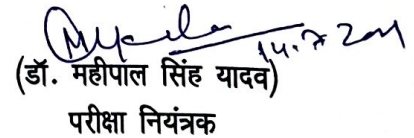 14.7.2011
(डॉ. महीपाल सिंह यादव)
परीक्षा नियंत्रक